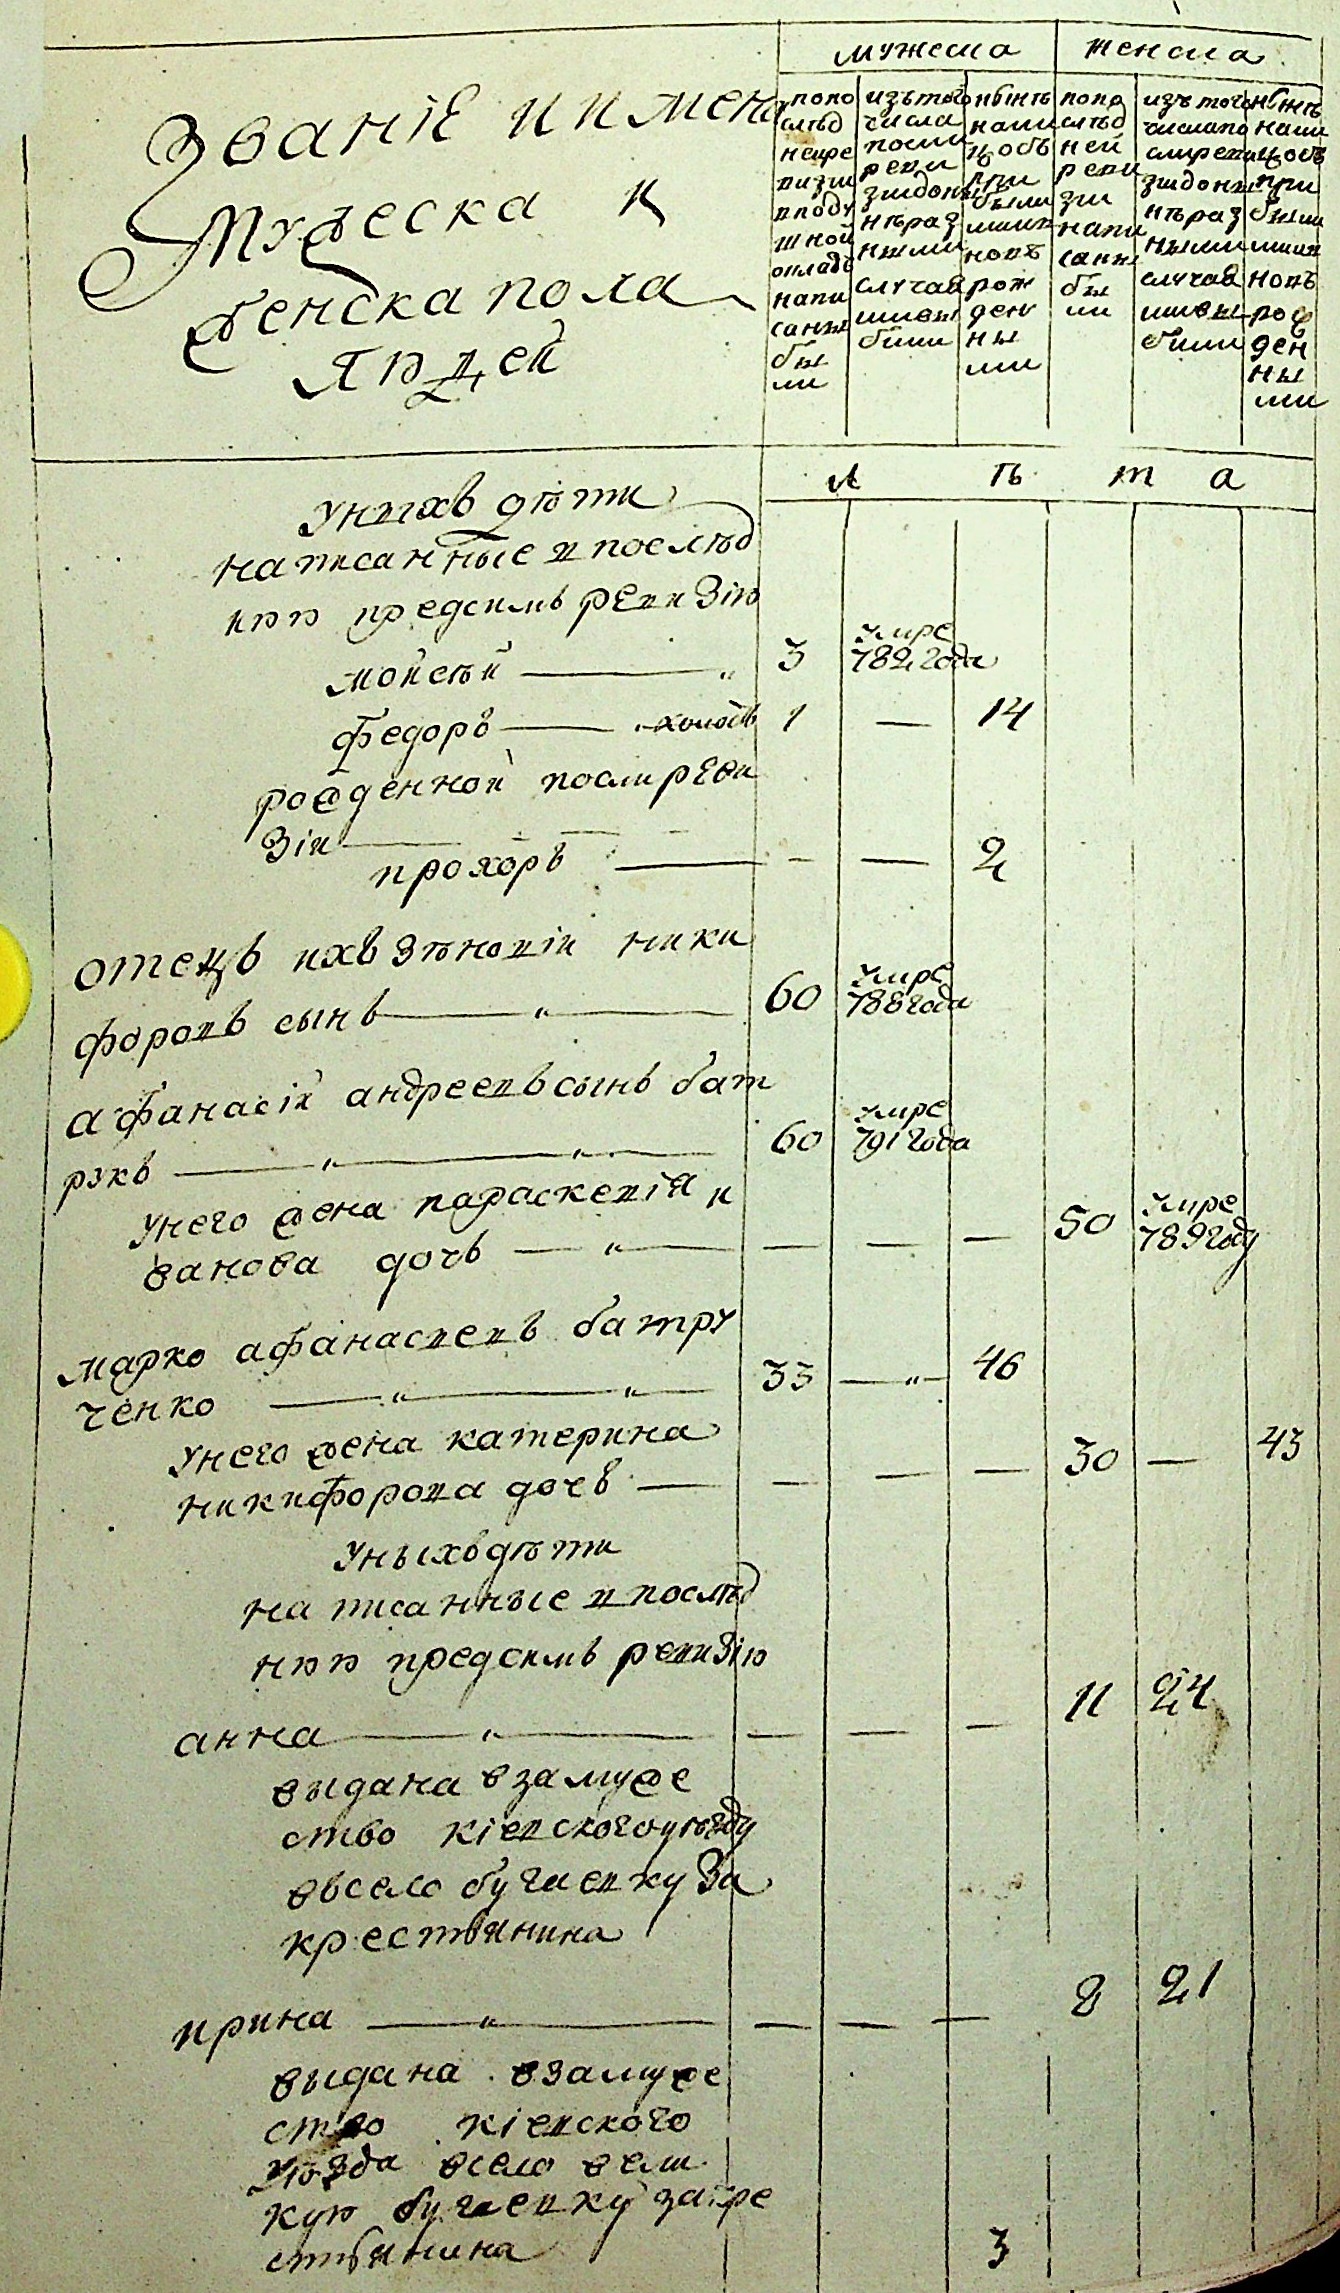 Званіе и имена
мужеска и
женска пола
людей
мужеска
женска
попо
слѣд
ней ре
визіи
в поду
шной
окладъ
напи
саны
бы
ли
изъ того
числа
посли
реви
зіи до ны
нѣ раз
ными
случая
ми вы
были
нынѣ
нали
цо съ
при
были
ми и
новъ
рож
ден
ны
ми
попо
слѣд
ней
реви
зіи
напи
саны
бы
ли
изъ того
числа по
сли реви
зіи до ны
нѣ раз
ными
случая
ми вы
были
нынѣ
нали
цо съ
при
были
ми и
новъ
рож
ден
ны
ми
л ѣ т а
у ныхъ дѣти
написанные в послѣд
нюю предсимъ ревизію
мойсѣй 3 умре 782 года
федоръ холостъ 1 — 14
рожденной посли реви
зіи
прохоръ — — 2
отецъ ихъ зѣновій ники
форовъ сынъ 60 умре 788 года
афанасій андреевъ сынъ бат
ракъ 60 умре 791 года
у него жена параскевія и
ванова дочь — — — 50 умре 789 году
марко афанасиевъ батру
ченко 33 — 46
у него жена катерина
никифорова дочъ — — — 30 — 43
у ныхъ дѣти
написанные в послѣд
нюю предсимъ ревизію
анна — — — 11 24
выдана в замуже
ство кіевского уѣзду
въ село бугаевку за
крестьянина
ирина — — — 8 21
выдана в замуже
ство кіевского
уѣзда в село вели
кую бугаевку за кре
стьянина
3